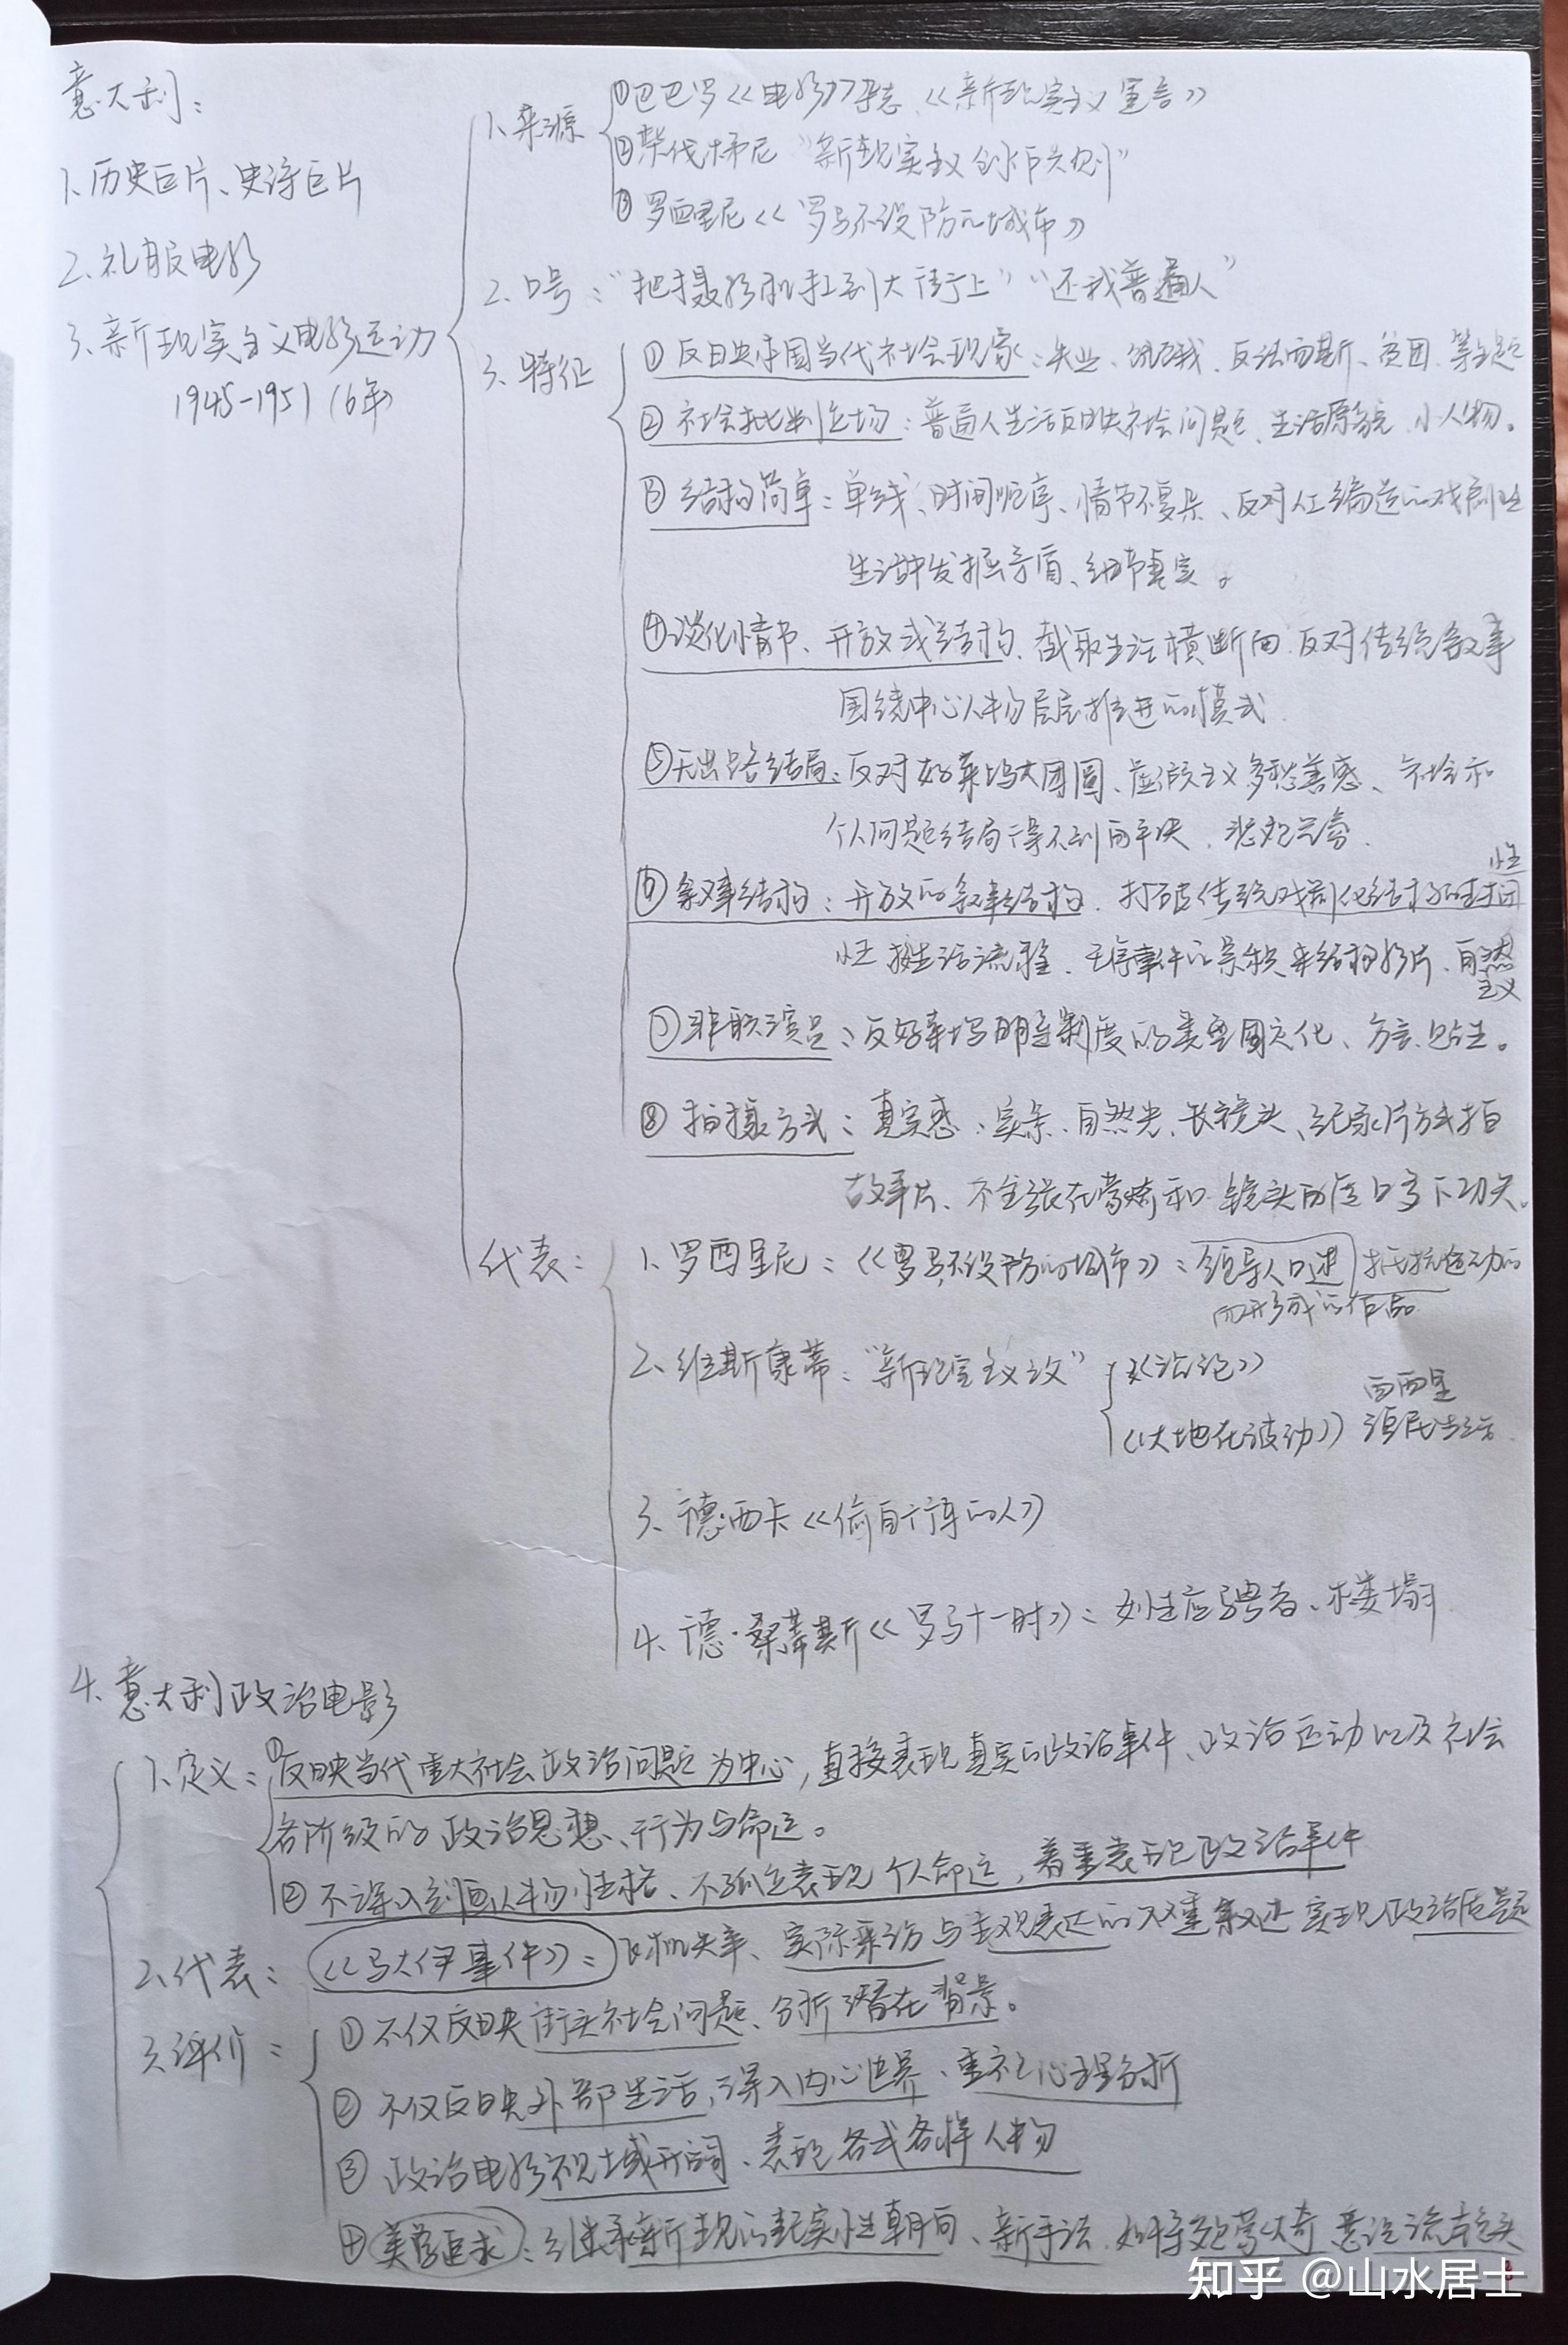 意大利：
1、历史巨片、史诗巨片
2、礼服电影
3、新现实主义电影运动
1945-1951（6年）
1、来源
①巴巴罗《电影》杂志、《新现实主义宣言》
②柴伐梯尼 “新现实主义创作原则”
③罗西里尼《罗马不设防的城市》
2、口号：“把摄影机扛到大街上” “还我普通人”
3、特征
①反映本国当代社会现象：失业、饥饿、反法西斯、贫困、等主题
②社会批判立场：普通人生活反映社会问题、生活原貌、小人物。
③结构简单：单线、时间顺序、情节不复杂、反对人工编造的戏剧性
生活中发掘矛盾、细节真实。
④淡化情节、开放式结构、截取生活横断面、反对传统叙事
围绕中心人物层层推进的模式
⑤无出路结局：反对好莱坞大团圆、虚假主义多愁善感、社会和
个人问题结局得不到解决、悲观
⑥叙事结构：开放的叙事结构、打破传统戏剧化结构的封闭
性 按生活流程、无序事件的累积来结构影片、自然
主义
⑦非职演员：反好莱坞明星制度的类型固定化、方言
⑧拍摄方式：真实感：实景、自然光、长镜头、纪录片方式拍
故事片、不主张在蒙太奇和镜头角度上多下功夫。
代表：
1、罗西里尼：《罗马不设防的城市》：领导人口述 抵抗运动的
而形成的作品
2、维斯康蒂：“新现实主义
《沉沦》
《大地在波动》 西西里
渔民生活
3、德·西卡《偷自行车的人》
4、德·桑蒂斯《罗马十一时》：女性应聘者、楼塌
4、意大利政治电影
1、定义：①反映当代重大社会政治问题为中心，直接表现真实的政治事件、政治运动以及社会
各阶级的政治思想、行为与命运。
②不深入刻画人物性格、不孤立表现个人命运，着重表现政治事件
2、代表：《马大伊事件》：飞机失事、实际采访与主观表达的双重叙述 实现政治质疑
3、评价：①不仅反映街头社会问题、分析潜在背景。
②不仅反映外部生活，深入内心世界、重视心理分析
③政治电影视域开阔、表现各式各样人物
④美学追求：继承新现的纪实性朝向、新手法、如杂耍蒙太奇 意识流镜头
知乎 @山水居士